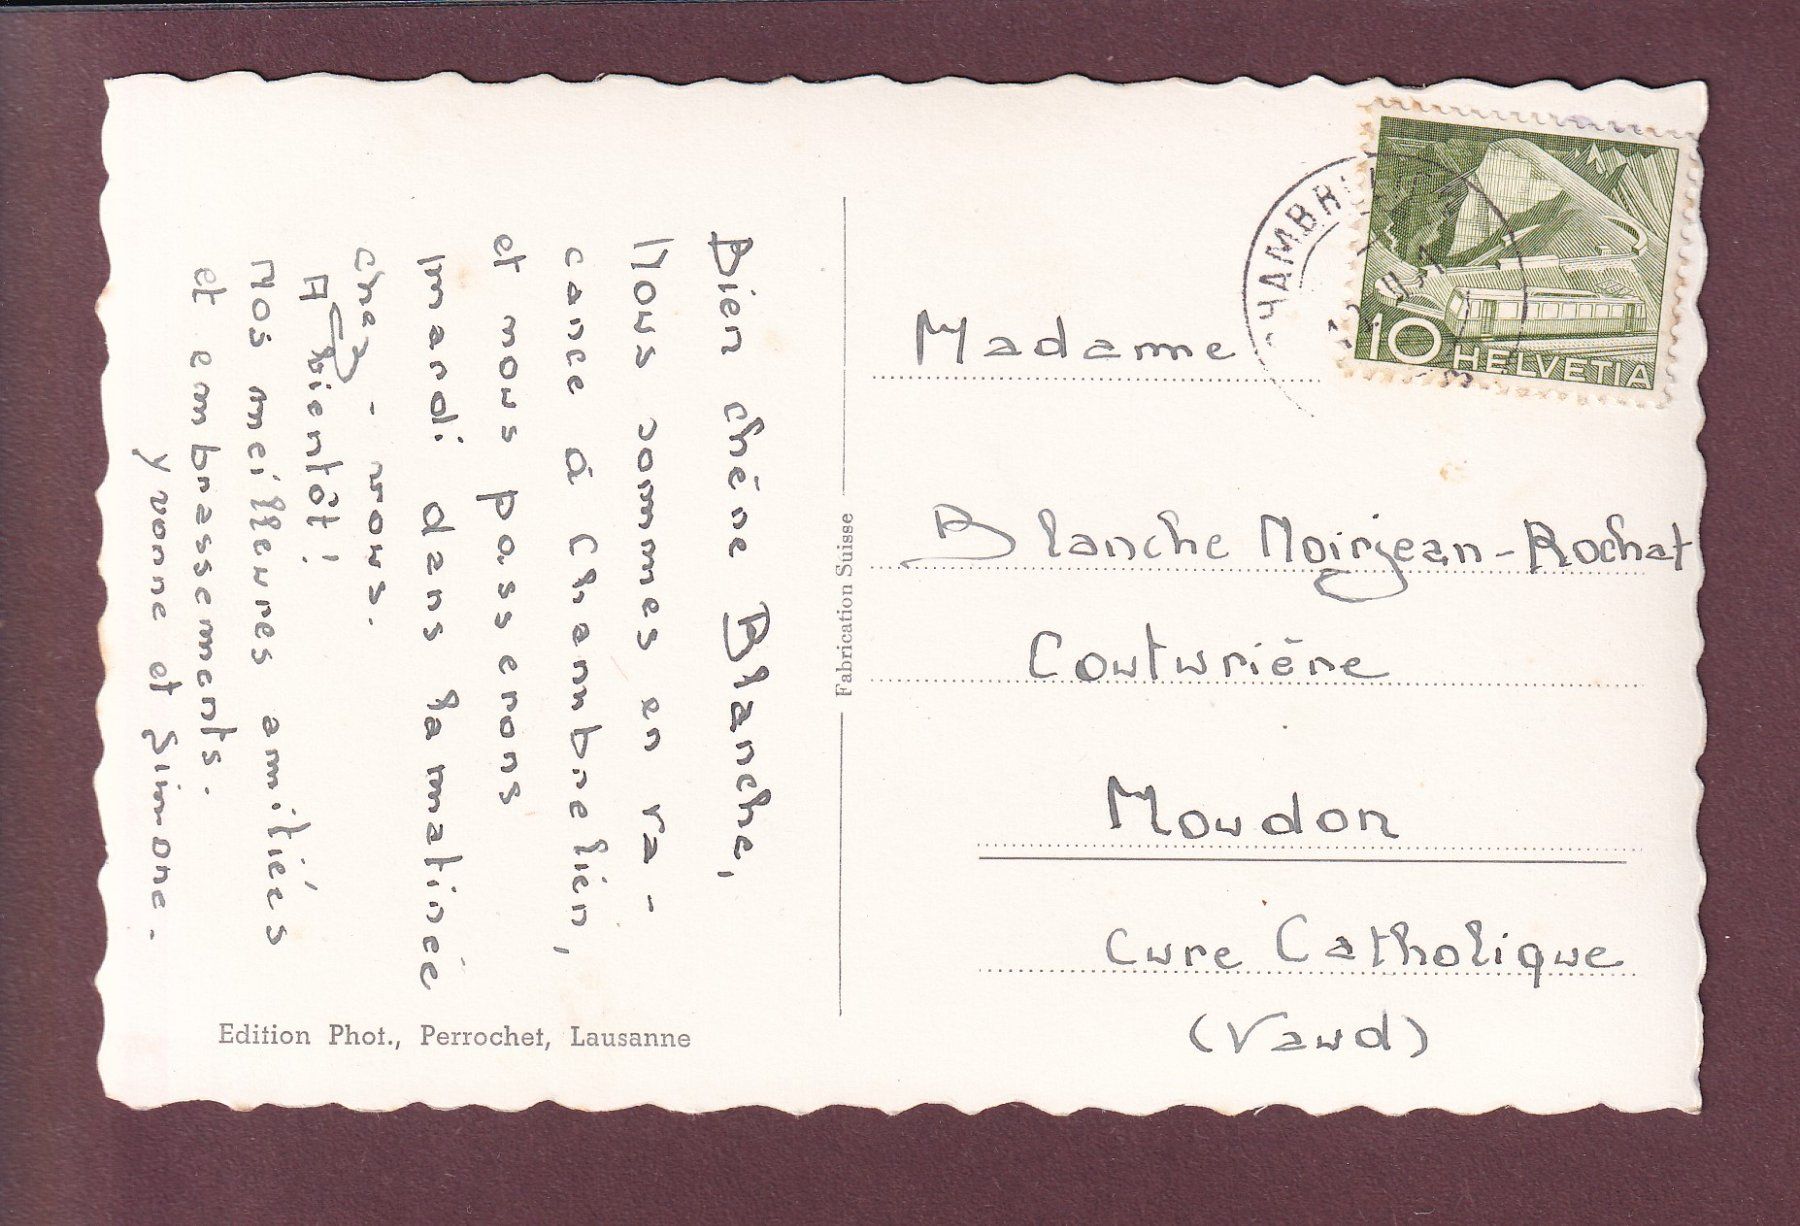 Bien chère Blanche,
Nous sommes en va-
cance à Chambrelien,
et nous passerons
mardi dans la matinée
chez-vous.
A bientôt!
Nos meilleures amitiées
et embrassements.
Yvonne et Simone.
Edition Phot., Perrochet, Lausanne
Fabrication Suisse
CHAMBREL
10 HELVETIA
Madame
Blanche Noirjean-Rochat
Couturière
Moudon
Cure Catholique
(Vaud)